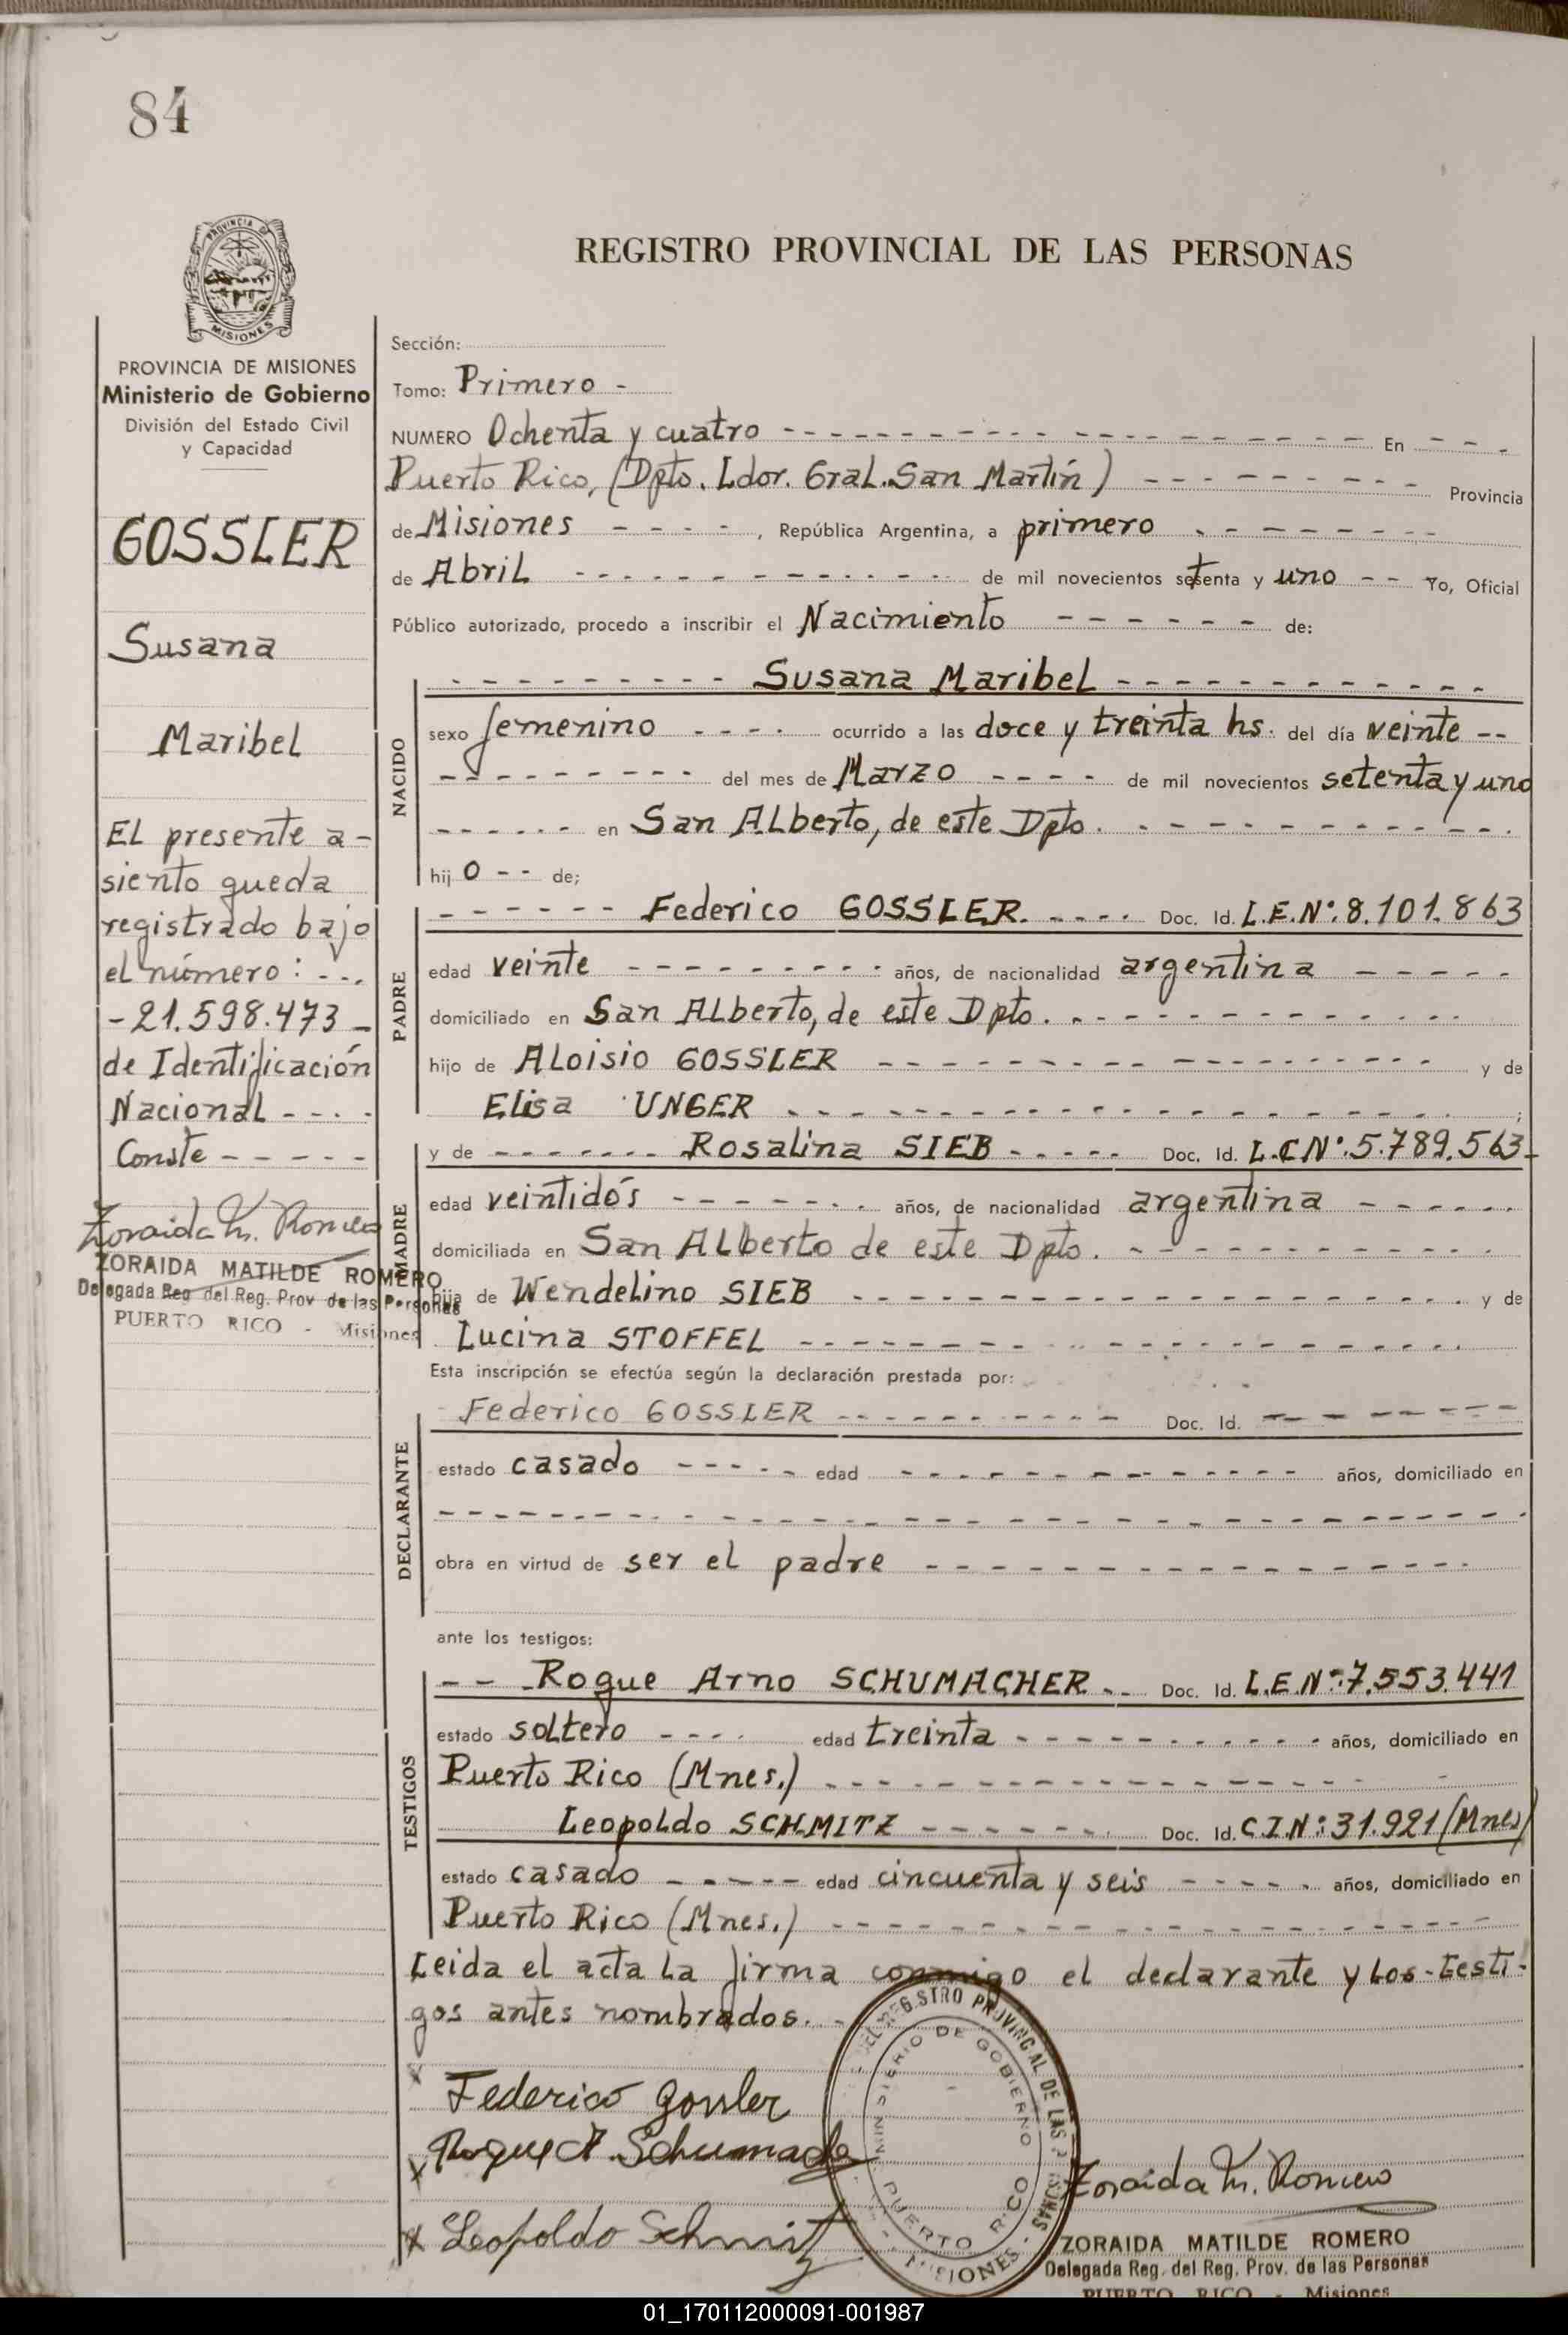 84
PROVINCIA DE
MISIONES
PROVINCIA DE MISIONES
Ministerio de Gobierno
División del Estado Civil
y Capacidad
GOSSLER
Susana
Maribel
EL presente a-
siento queda
registrado bajo
el número: - - -
- 21.598.473 -
de Identificación
Nacional - - - -
Conste - - - - -
Zoraida M. Romero
ZORAIDA MATILDE ROMERO
Delegada Reg. del Reg. Prov. de las Personas
PUERTO RICO - Misiones
REGISTRO PROVINCIAL DE LAS PERSONAS
Sección:
Tomo: Primero -
NUMERO Ochenta y cuatro - - - En - - -
Puerto Rico, (Dpto. Ldor. Gral. San Martín) - - - Provincia
de Misiones - - - -, República Argentina, a primero - - -
de Abril - - - de mil novecientos setenta y uno - - Yo, Oficial
Público autorizado, procedo a inscribir el Nacimiento - - - de:
NACIDO
- - - Susana Maribel - - -
sexo femenino - - - - ocurrido a las doce y treinta hs. del día veinte - -
- - - del mes de Marzo - - - - de mil novecientos setenta y uno
- - - en San ALberto, de este Dpto. - - -
hij o - - de;
PADRE
- - - Federico GOSSLER. - - - - Doc. Id. L.E.N°: 8.101.863
edad veinte - - - años, de nacionalidad argentina - - -
domiciliado en San ALberto, de este Dpto. - - -
hijo de ALoisio GOSSLER - - - y de
Elisa UNGER - - - ;
MADRE
y de - - - Rosalina SIEB - - - Doc. Id. L.C.N°: 5.789.563-
edad veintidós - - - años, de nacionalidad argentina - - -
domiciliada en San ALberto de este Dpto. - - -
hija de Wendelino SIEB - - - y de
Lucina STOFFEL - - -
Esta inscripción se efectúa según la declaración prestada por:
DECLARANTE
- Federico GOSSLER - - - Doc. Id. - - -
estado casado - - - edad - - - años, domiciliado en
- - -
obra en virtud de ser el padre - - -
ante los testigos:
TESTIGOS
- - - Roque Arno SCHUMACHER - - Doc. Id. L.E.N°: 7.553.441
estado soltero - - - - edad treinta - - - años, domiciliado en
Puerto Rico (Mnes.) - - -
Leopoldo SCHMITZ - - - Doc. Id. C.I.N°: 31.921 (Mnes)
estado casado - - - edad cincuenta y seis - - - años, domiciliado en
Puerto Rico (Mnes.) - - -
Leida el acta la firma conmigo el declarante y los testi-
gos antes nombrados. -
x Federico Gossler
x Roque A. Schumacher
x Leopoldo Schmitz
DEL REGISTRO PROVINCIAL DE LAS PERSONAS
MINISTERIO DE GOBIERNO
PUERTO RICO
MISIONES
Zoraida M. Romero
ZORAIDA MATILDE ROMERO
Delegada Reg. del Reg. Prov. de las Personas
PUERTO RICO - Misiones
01_170112000091-001987